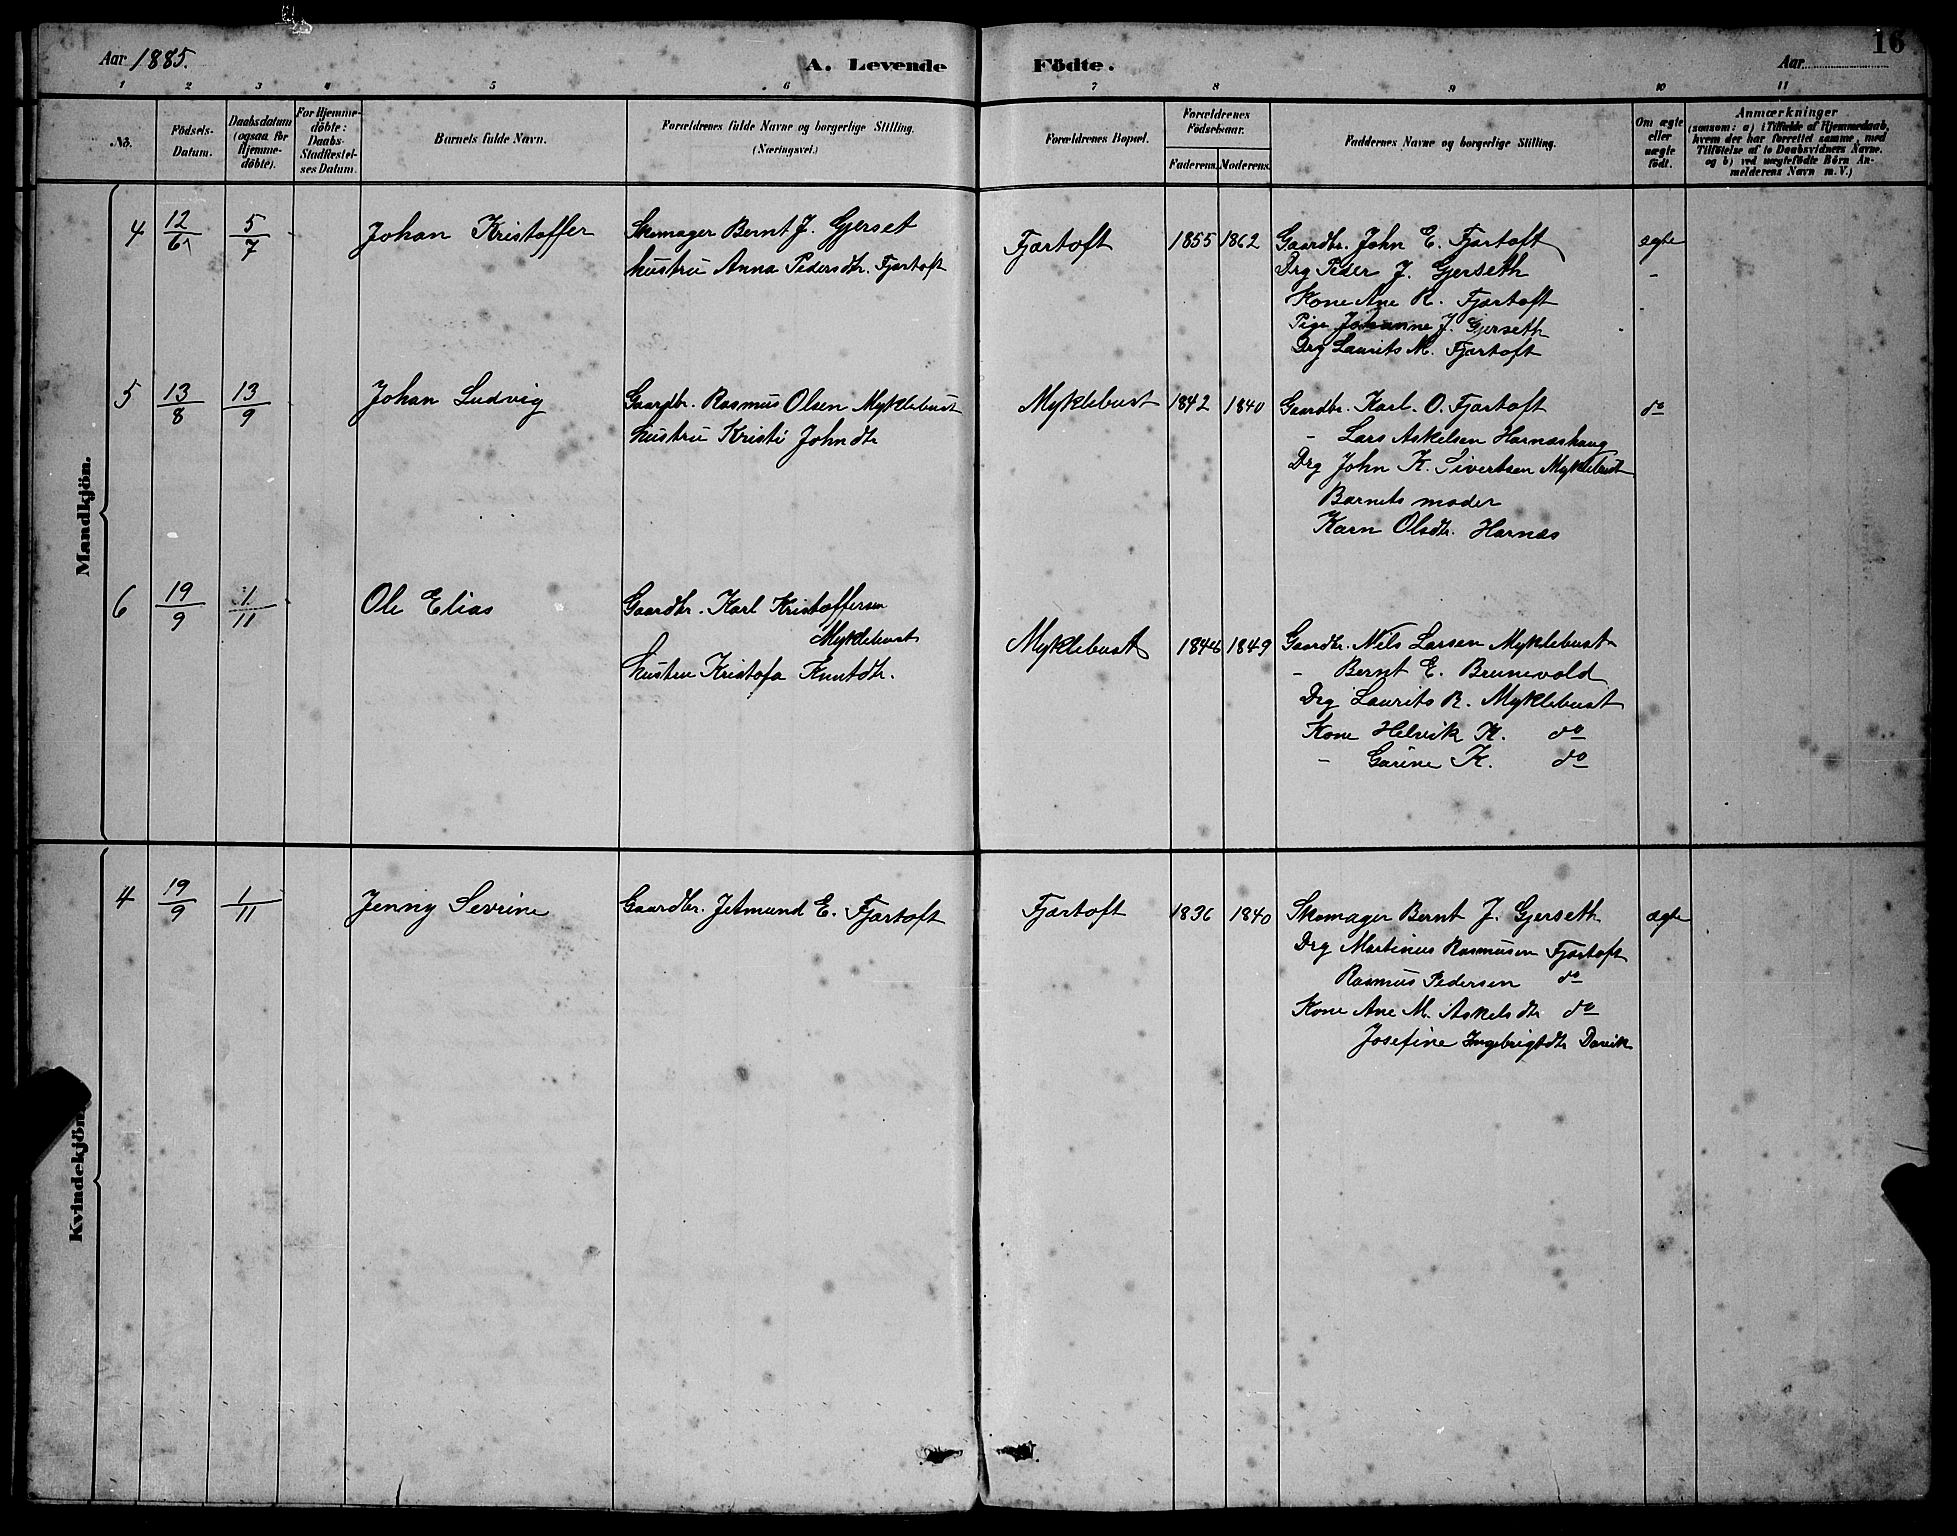 16
Aar 1885.
A. Levende Födte.
Aar
1 2 3 4 5 6 7 8 9 10 11
No.
Födsels-
Datum.
Daabsdatum
(ogsaa for
Hjemme-
döbte).
For Hjemme-
döbte:
Daabs-
Stadfæstel-
ses Datum.
Barnets fulde Navn.
Forældrenes fulde Navne og borgerlige Stilling.
(Næringsvei.)
Forældrenes Bopæl.
Forældrenes
Födselsaar.
Faderens. Moderens.
Faddernes Navne og borgerlige Stilling.
Om ægte
eller
uægte
födt.
Anmærkninger
(saasom: a) i Tilfælde af Hjemmedaab,
hvem der har forrettet samme, med
Tilföielse af to Daabsvidners Navne.
og b) ved uægtefödte Börn An-
melderens Navn m. V.)
Mandkjön.
4 12/6 5/7 Johan Kristoffer Skomager Bernt J. Gjerset Fjærtoft 1855 1862 Gaardbr. John E. Fjærtoft ægte
hustru Anna Pedersdtr. Fjærtoft Drg Peder J. Gjerseth -
Kone Ane R. Fjærtoft
Pige Johanne J. Gjerseth
Drg Laurits M. Fjærtoft
5 13/8 13/9 Johan Ludvig Gaardbr. Rasmus Olsen Myklebust Myklebust 1842 1840 Gaardbr. Karl. O. Fjærtoft do
hustru Kristi Johndtr - Lars Askelsen Harnæshaug
Drg John K. Sivertsen Myklebust
Barnets moder
Karn Olsdtr. Harnæs
6 19/9 1/11 Ole Elias Gaardbr. Karl Kristoffersen
Myklebust Myklebust 1849 Gaardbr. Nils Larsen Myklebust
hustru Kristofa Knutdtr. - Bernt E. Brunevold
Drg Laurits R. Myklebust
Kone Helvik K. do
- Garine K. do
Kvindekjön.
4 19/9 1/11 Jenny Sevrine Gaardbr. Jetmund E. Fjærtoft Fjærtoft 1836 1840 Skomager Bernt J. Gjerseth ægte
Drg Martinus Rasmusen Fjærtoft
Rasmus Pedersen do
Kone Ane M. Askelsdtr do
Josefine Ingebrigtdtr